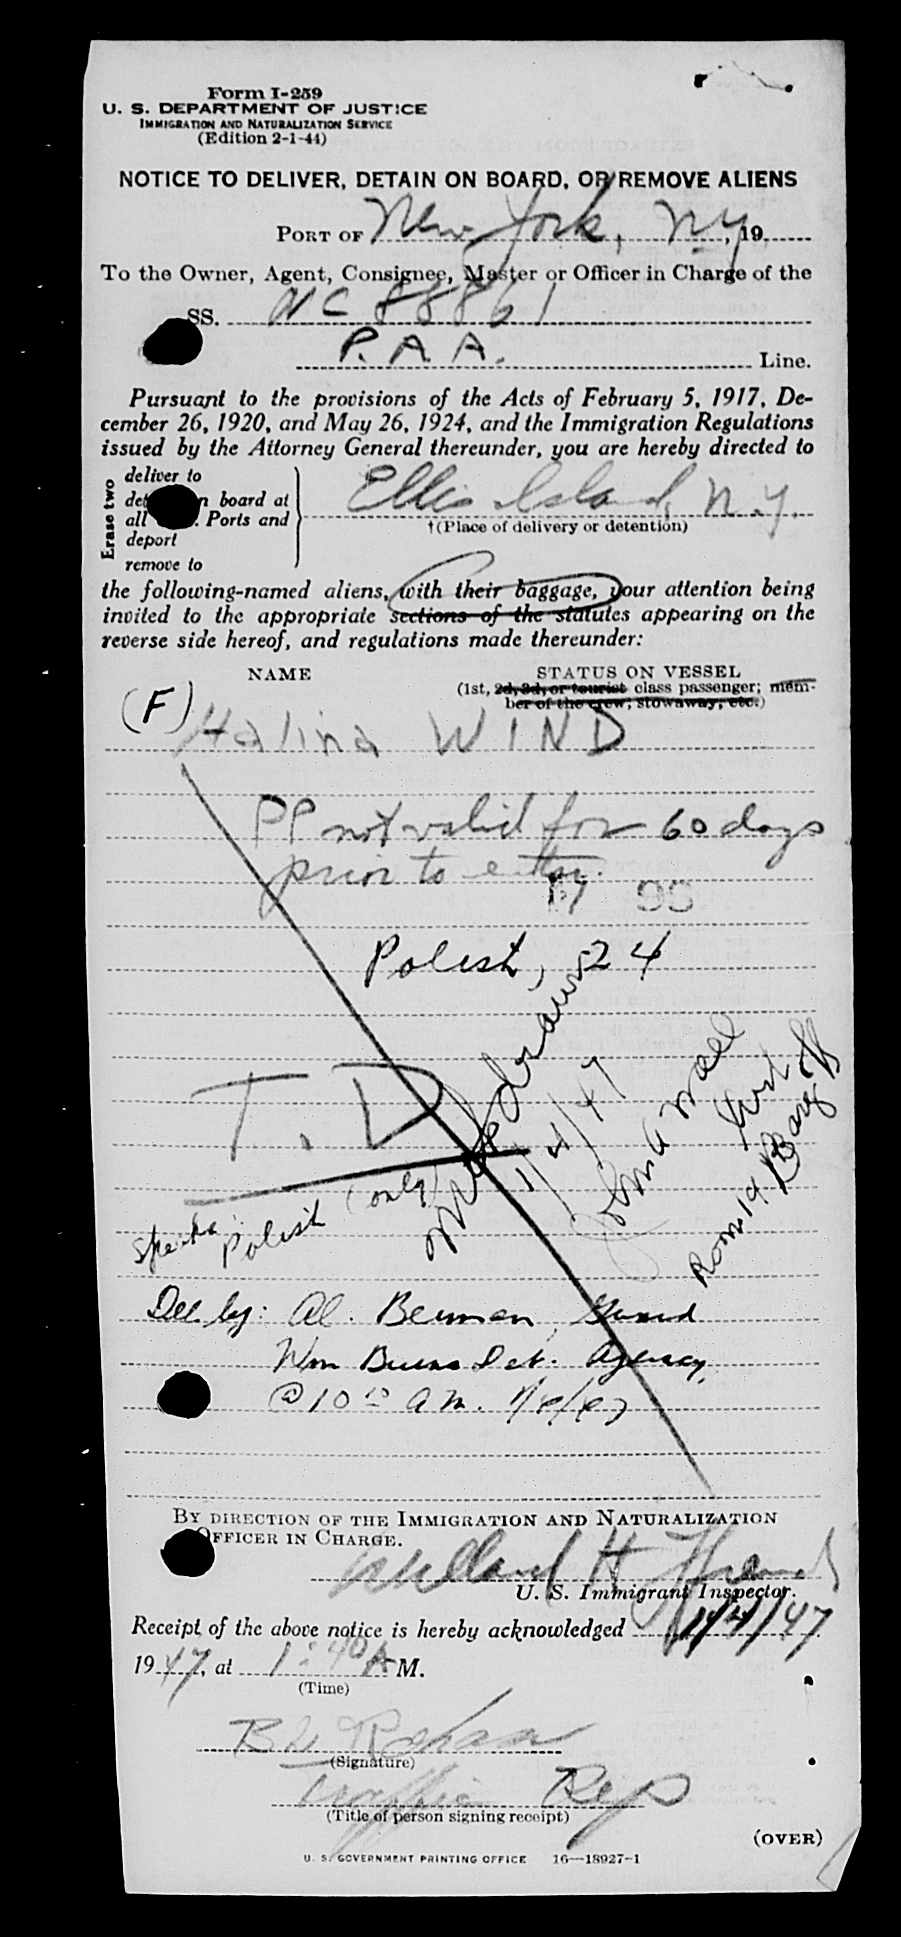 Form I-259
U. S. DEPARTMENT OF JUSTICE
IMMIGRATION AND NATURALIZATION SERVICE
(Edition 2-1-44)
NOTICE TO DELIVER, DETAIN ON BOARD, OR REMOVE ALIENS
PORT OF New York, N.Y., 19
To the Owner, Agent, Consignee, Master or Officer in Charge of the
SS. NC 88861
P. A. A. Line.
Pursuant to the provisions of the Acts of February 5, 1917, De-
cember 26, 1920, and May 26, 1924, and the Immigration Regulations
issued by the Attorney General thereunder, you are hereby directed to
Erase two
deliver to
board at
all Ports and
deport
remove to
Ellis Island, N.Y.
†(Place of delivery or detention)
the following-named aliens, with their baggage, your attention being
invited to the appropriate sections of the statutes appearing on the
reverse side hereof, and regulations made thereunder:
NAME
STATUS ON VESSEL
(1st, 2d, 3d, or tourist class passenger; mem-
ber of the crew; stowaway, etc.)
(F) Halina WIND
PP not valid for 60 days
prior to entry.
17 93
Polish, 24
T. D
Withdrawn
1/4/47
John A
Room 19 Barge Off
Speaks Polish (only)
Del by: Al. Berman, Guard
Wm Burns Det. Agency,
@ 10 AM. 1/4/47
BY DIRECTION OF THE IMMIGRATION AND NATURALIZATION
OFFICER IN CHARGE.
Willard H
U. S. Immigrant Inspector.
Receipt of the above notice is hereby acknowledged 1/4/47
1947, at 1:40 A M.
(Time)
(Signature)
Traffic Rep
(Title of person signing receipt)
(OVER)
U. S. GOVERNMENT PRINTING OFFICE 16—18927-1